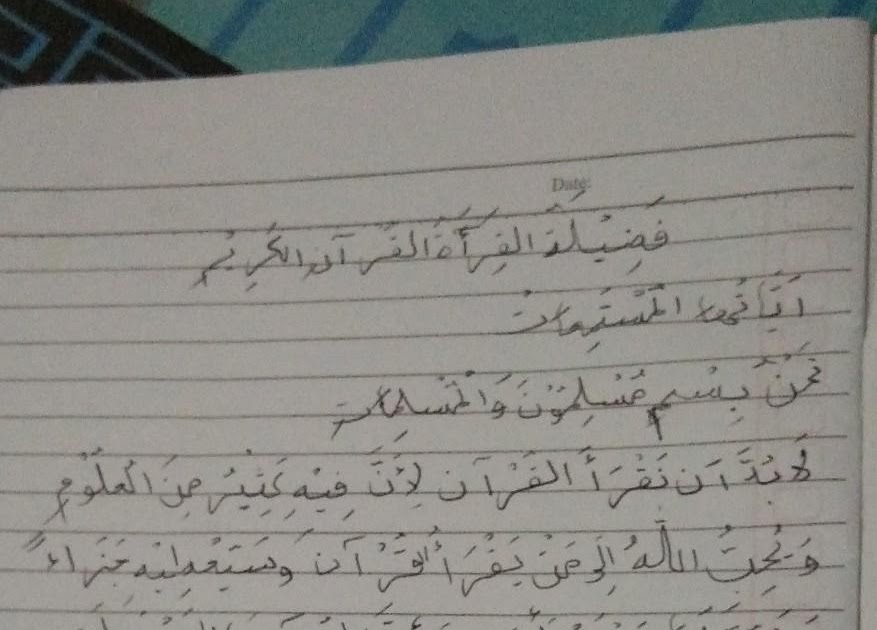 Date:
فَضِيْلَةَ القِرَأَةَ القُرْآنِ الكَرِيْمِ
اَيَّاتُهَا المُسْتَمِعَاتْ
نَحْنُ بِسْمِ مُسْلِمُوْنَ وَالْمُسْلِمَاتِ
لَا بُدَّ اَنْ نَقْرَأَ القُرْآنَ لِأَنَّ فِيْهِ كَثِيْرٌ مِنَ العُلُوْمِ
وَيُحِبُّ اللّٰهُ اِلَى مَنْ يَقْرَأُ القُرْآنَ وَسَيَعْطِيْهِ جَزَاءً